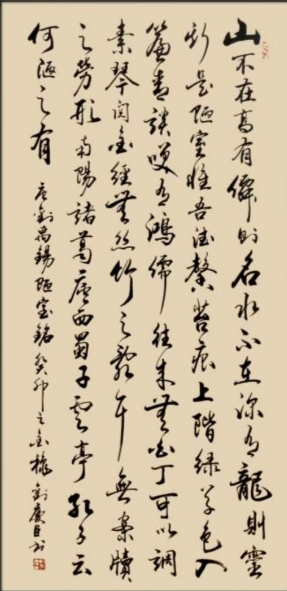 山不在高有僊則名水不在深有龍則靈
斯是陋室惟吾德馨苔痕上階綠草色入
簾青談笑有鴻儒往來無白丁可以調
素琴閱金經無絲竹之亂耳無案牘
之勞形南陽諸葛廬西蜀子雲亭孔子云
何陋之有 唐劉禹錫陋室銘癸卯之金秋劉慶書